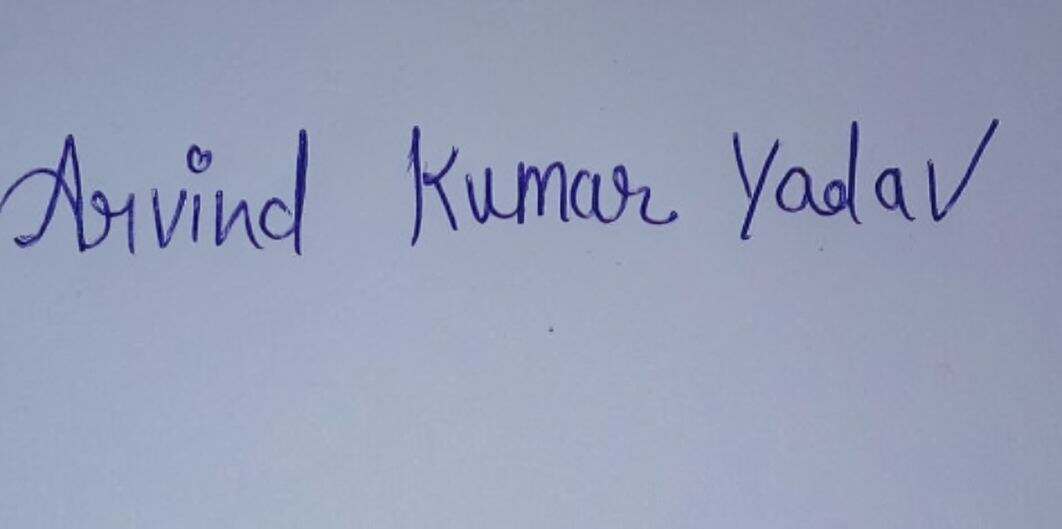 Arvind Kumar Yadav